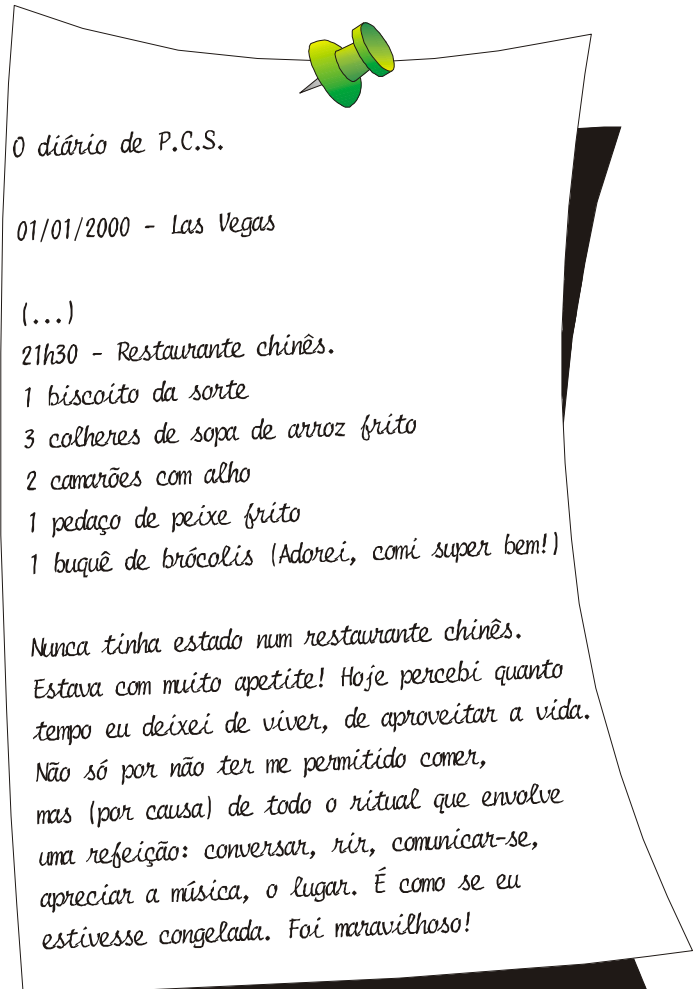 O diário de P.C.S.
01/01/2000 - Las Vegas
(...)
21h30 - Restaurante chinês.
1 biscoito da sorte
3 colheres de sopa de arroz frito
2 camarões com alho
1 pedaço de peixe frito
1 buquê de brócolis (Adorei, comi super bem!)
Nunca tinha estado num restaurante chinês.
Estava com muito apetite! Hoje percebi quanto
tempo eu deixei de viver, de aproveitar a vida.
Não só por não ter me permitido comer,
mas (por causa) de todo o ritual que envolve
uma refeição: conversar, rir, comunicar-se,
apreciar a música, o lugar. É como se eu
estivesse congelada. Foi maravilhoso!